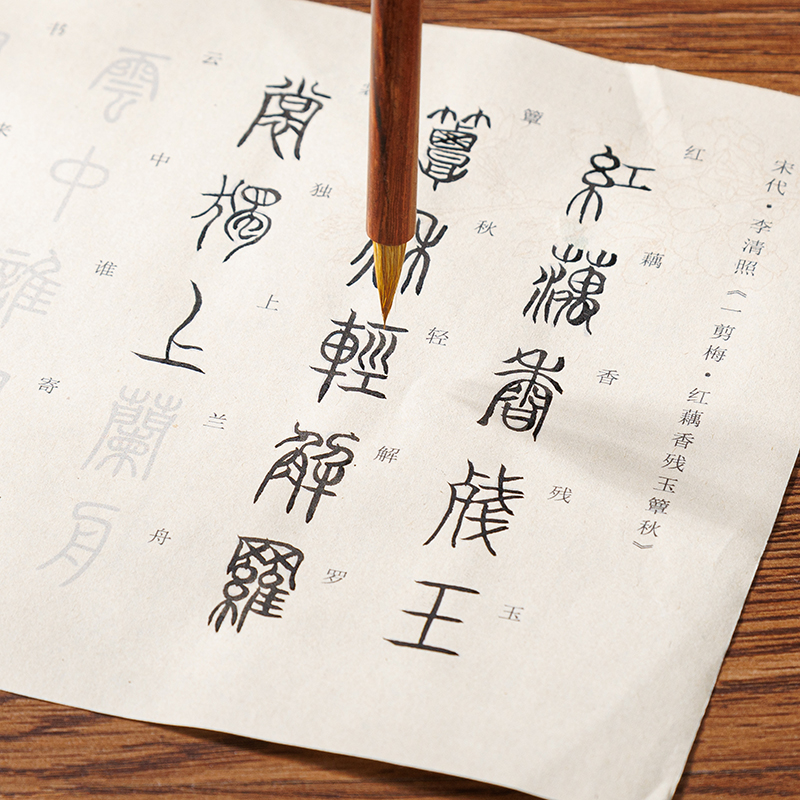 宋代·李清照《一剪梅·红藕香残玉簟秋》
红藕香残玉
紅藕香殘玉
簟秋轻解罗
簟秋輕解羅
独上兰舟
裳獨上蘭舟
云中谁寄
雲中誰
书